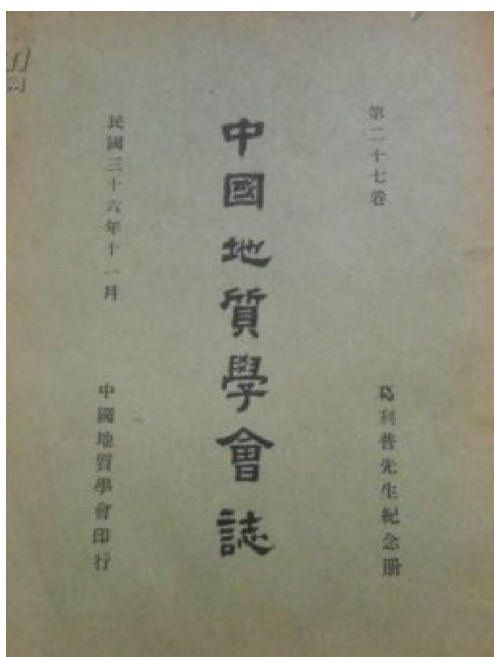 第二十七卷
葛利普先生紀念册
中國地质學會誌
民國三十六年十一月
中國地質學會印行